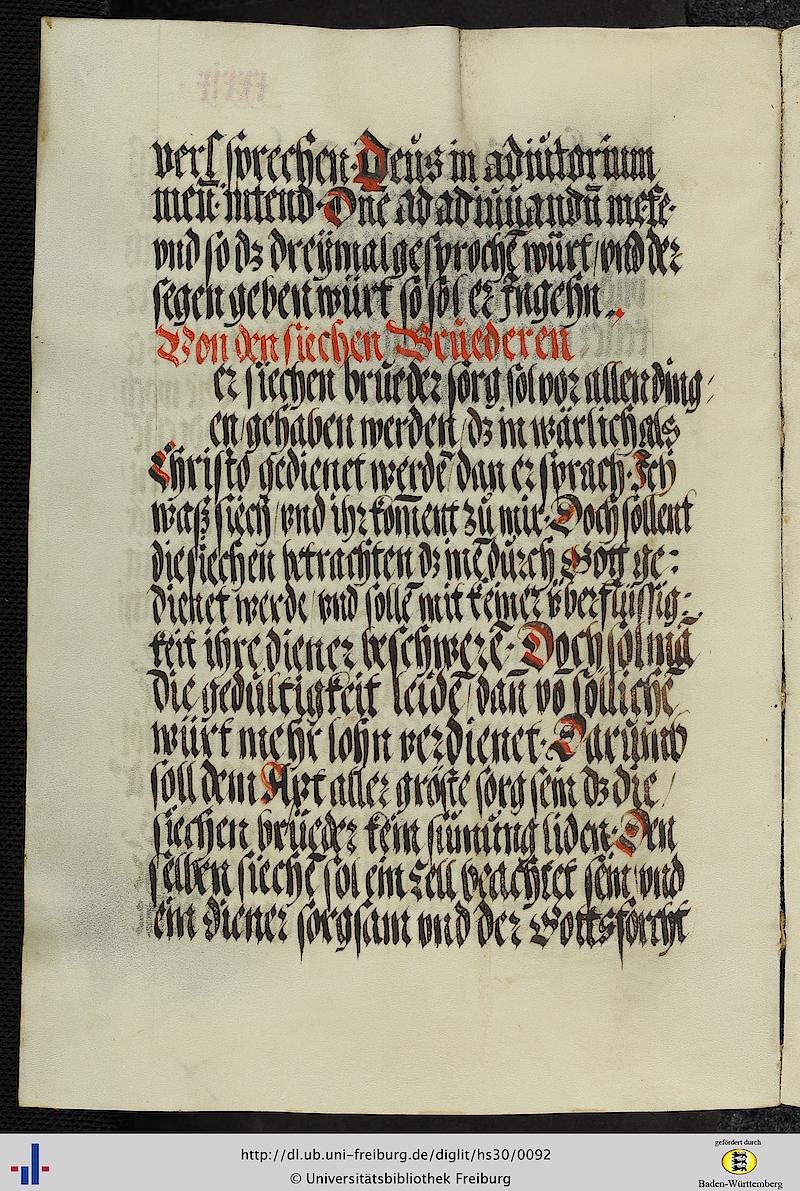 versſ sprechen· Deus in adiutorium
meū intend· Dne ad adiuuandū me fe·
vnd so dz dreÿmal gesprochē würt / vnd der
segen geben würt so sol er Ingehn
Von den siechen Brüederen
er siechen brüeder sorg sol vor allen ding /
en / gehaben werden / dz in wärlich als
Christo gedienet werdē / dan er sprach· Ich
waß siech / vnd ihr kom̄ent zu mir· Doch sollent
die siechen betrachten dz inē durch Gott ge:
dienet werde / vnd sollē mit keiner vberflüssig:
keit ihre diener beschwerē· Doch sol mā
die gedultigkeit leidē / dan̄ vō sollichē
würt mehr lohn verdienet· Darumb
soll dem Apt aller gröste sorg sein dz die /
siechen brüeder kein sümung liden· Den
selben siechē sol ein zell beachtet sein / vnd
ein diener sorgsam vnd der Gottsforcht
http://dl.ub.uni-freiburg.de/diglit/hs30/0092
© Universitätsbibliothek Freiburg
gefördert durch
Baden-Württemberg